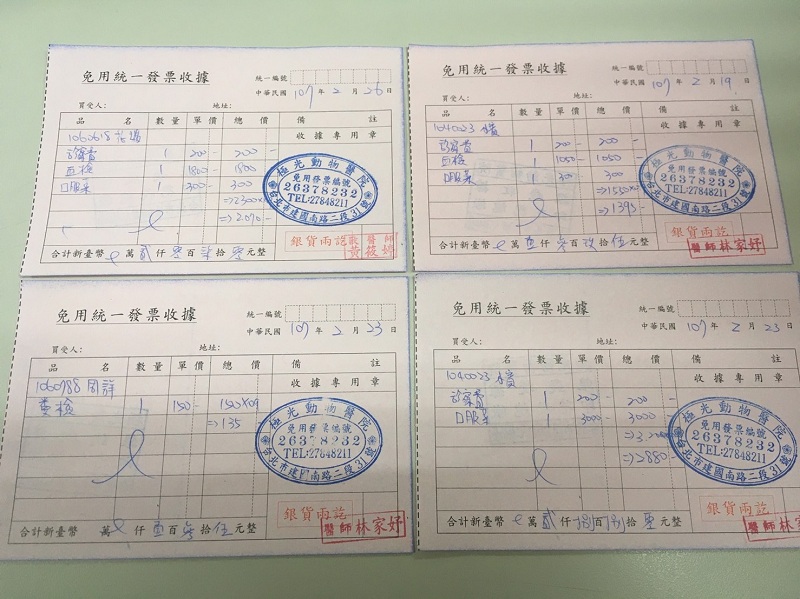 免用統一發票收據
統一編號
中華民國 107 年 2 月 26 日
買受人: 地址:
品名 數量 單價 總價 備註
1060618 收據專用章
診察費 1 200- 200-
血檢 1 1800- 1800
口服藥 1 300- 300
=>2300×
=>2090-
極光動物醫院
免用發票編號
26378232
TEL:27848211
台北市建國南路二段31號
銀貨兩訖
獸醫師
黃筱婷
合計新臺幣 萬 貳 仟 零 百 玖 拾 零 元整
免用統一發票收據
統一編號
中華民國 107 年 2 月 19 日
買受人: 地址:
品名 數量 單價 總價 備註
1040023 收據專用章
診察費 1 200- 200-
血檢 1 1050- 1050-
口服藥 1 300 300
=>1550×
=>1395-
極光動物醫院
免用發票編號
26378232
TEL:27848211
台北市建國南路二段31號
銀貨兩訖
醫師林家妤
合計新臺幣 萬 壹 仟 百 玖 拾 伍 元整
免用統一發票收據
統一編號
中華民國 107 年 2 月 23 日
買受人: 地址:
品名 數量 單價 總價 備註
1060988 收據專用章
糞檢 1 150- 150×09
=>135
極光動物醫院
免用發票編號
26378232
TEL:27848211
台北市建國南路二段31號
銀貨兩訖
醫師林家妤
合計新臺幣 萬 仟 壹 百 拾 伍 元整
免用統一發票收據
統一編號
中華民國 107 年 2 月 23 日
買受人: 地址:
品名 數量 單價 總價 備註
1040023 收據專用章
診察費 1 200- 200-
口服藥 1 3000- 3000-
=>2880-
極光動物醫院
免用發票編號
26378232
TEL:27848211
台北市建國南路二段31號
銀貨兩訖
醫師林家
合計新臺幣 萬 貳 仟 捌 百 捌 拾 零 元整